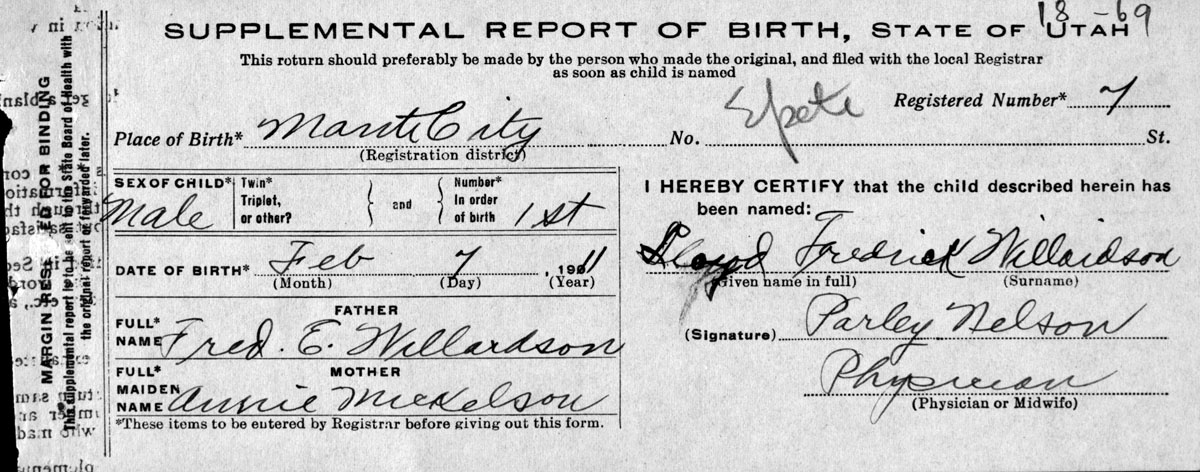 18-69
SUPPLEMENTAL REPORT OF BIRTH, STATE OF UTAH
This return should preferably be made by the person who made the original, and filed with the local Registrar
as soon as child is named
Registered Number* 7
Place of Birth* Manti City No. St.
(Registration district)
SEX OF CHILD* Male
Twin*
Triplet,
or other?
and
Number*
In order
of birth 1st
DATE OF BIRTH* Feb 7, 1911
(Month) (Day) (Year)
FATHER
FULL*
NAME Fred. E. Willardson
MOTHER
FULL*
MAIDEN
NAME Annie Mickelson
*These items to be entered by Registrar before giving out this form.
I HEREBY CERTIFY that the child described herein has
been named:
Lloyd Fredrick Willardson
(Given name in full) (Surname)
(Signature) Parley Nelson
Physician
(Physician or Midwife)
MARGIN RESERVED FOR BINDING
This supplemental report is to be sent to the State Board of Health with
the original report or forwarded later.